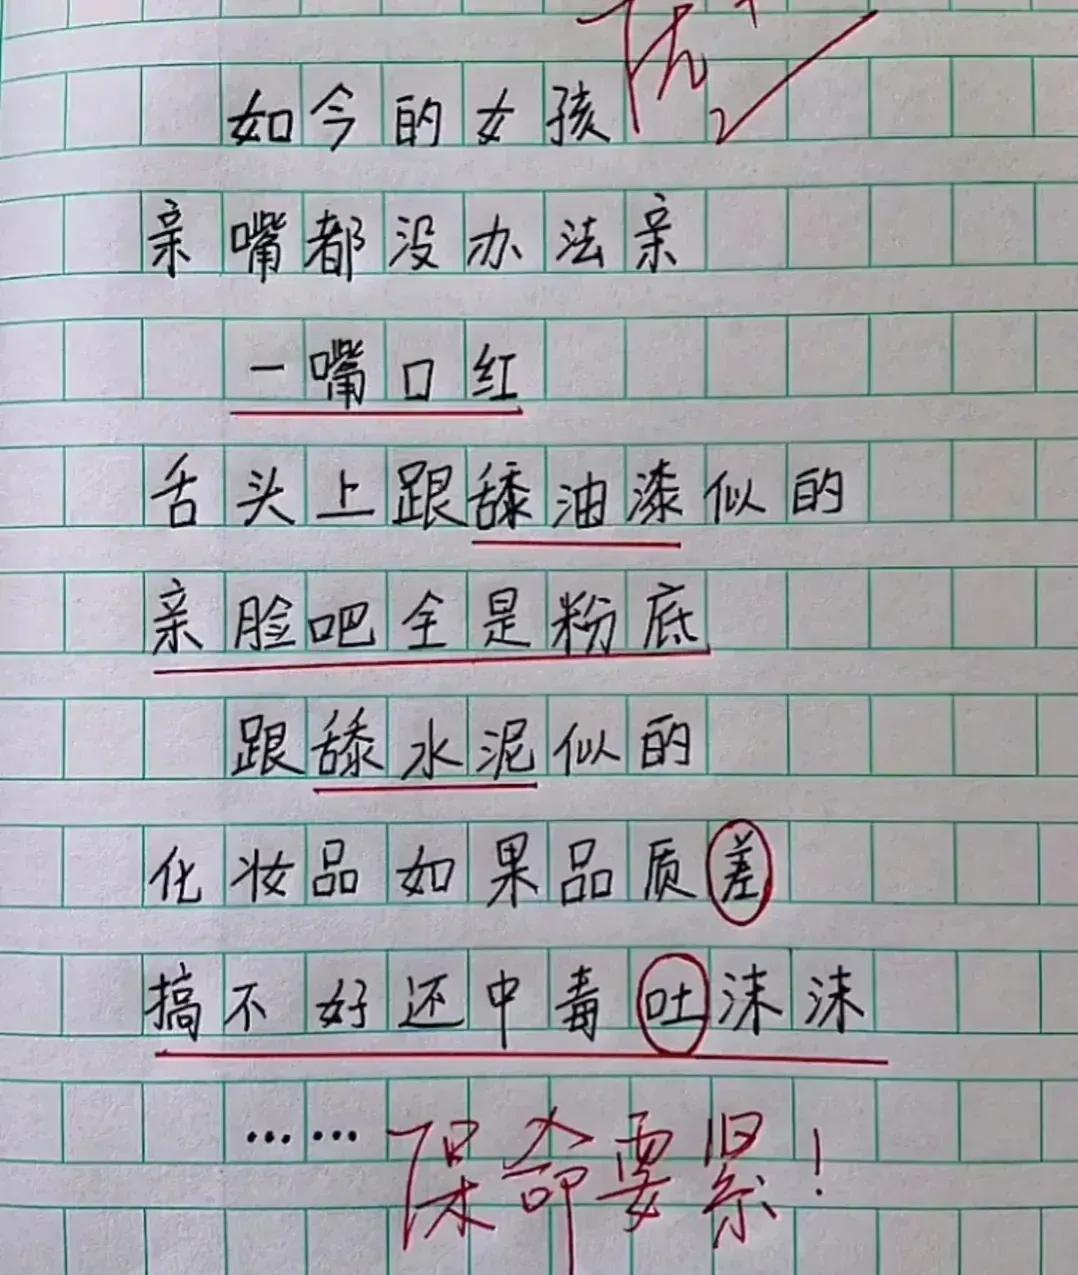 优
如今的女孩
亲嘴都没办法亲
一嘴口红
舌头上跟舔油漆似的
亲脸吧全是粉底
跟舔水泥似的
化妆品如果品质差
搞不好还中毒吐沫沫
……保命要紧！